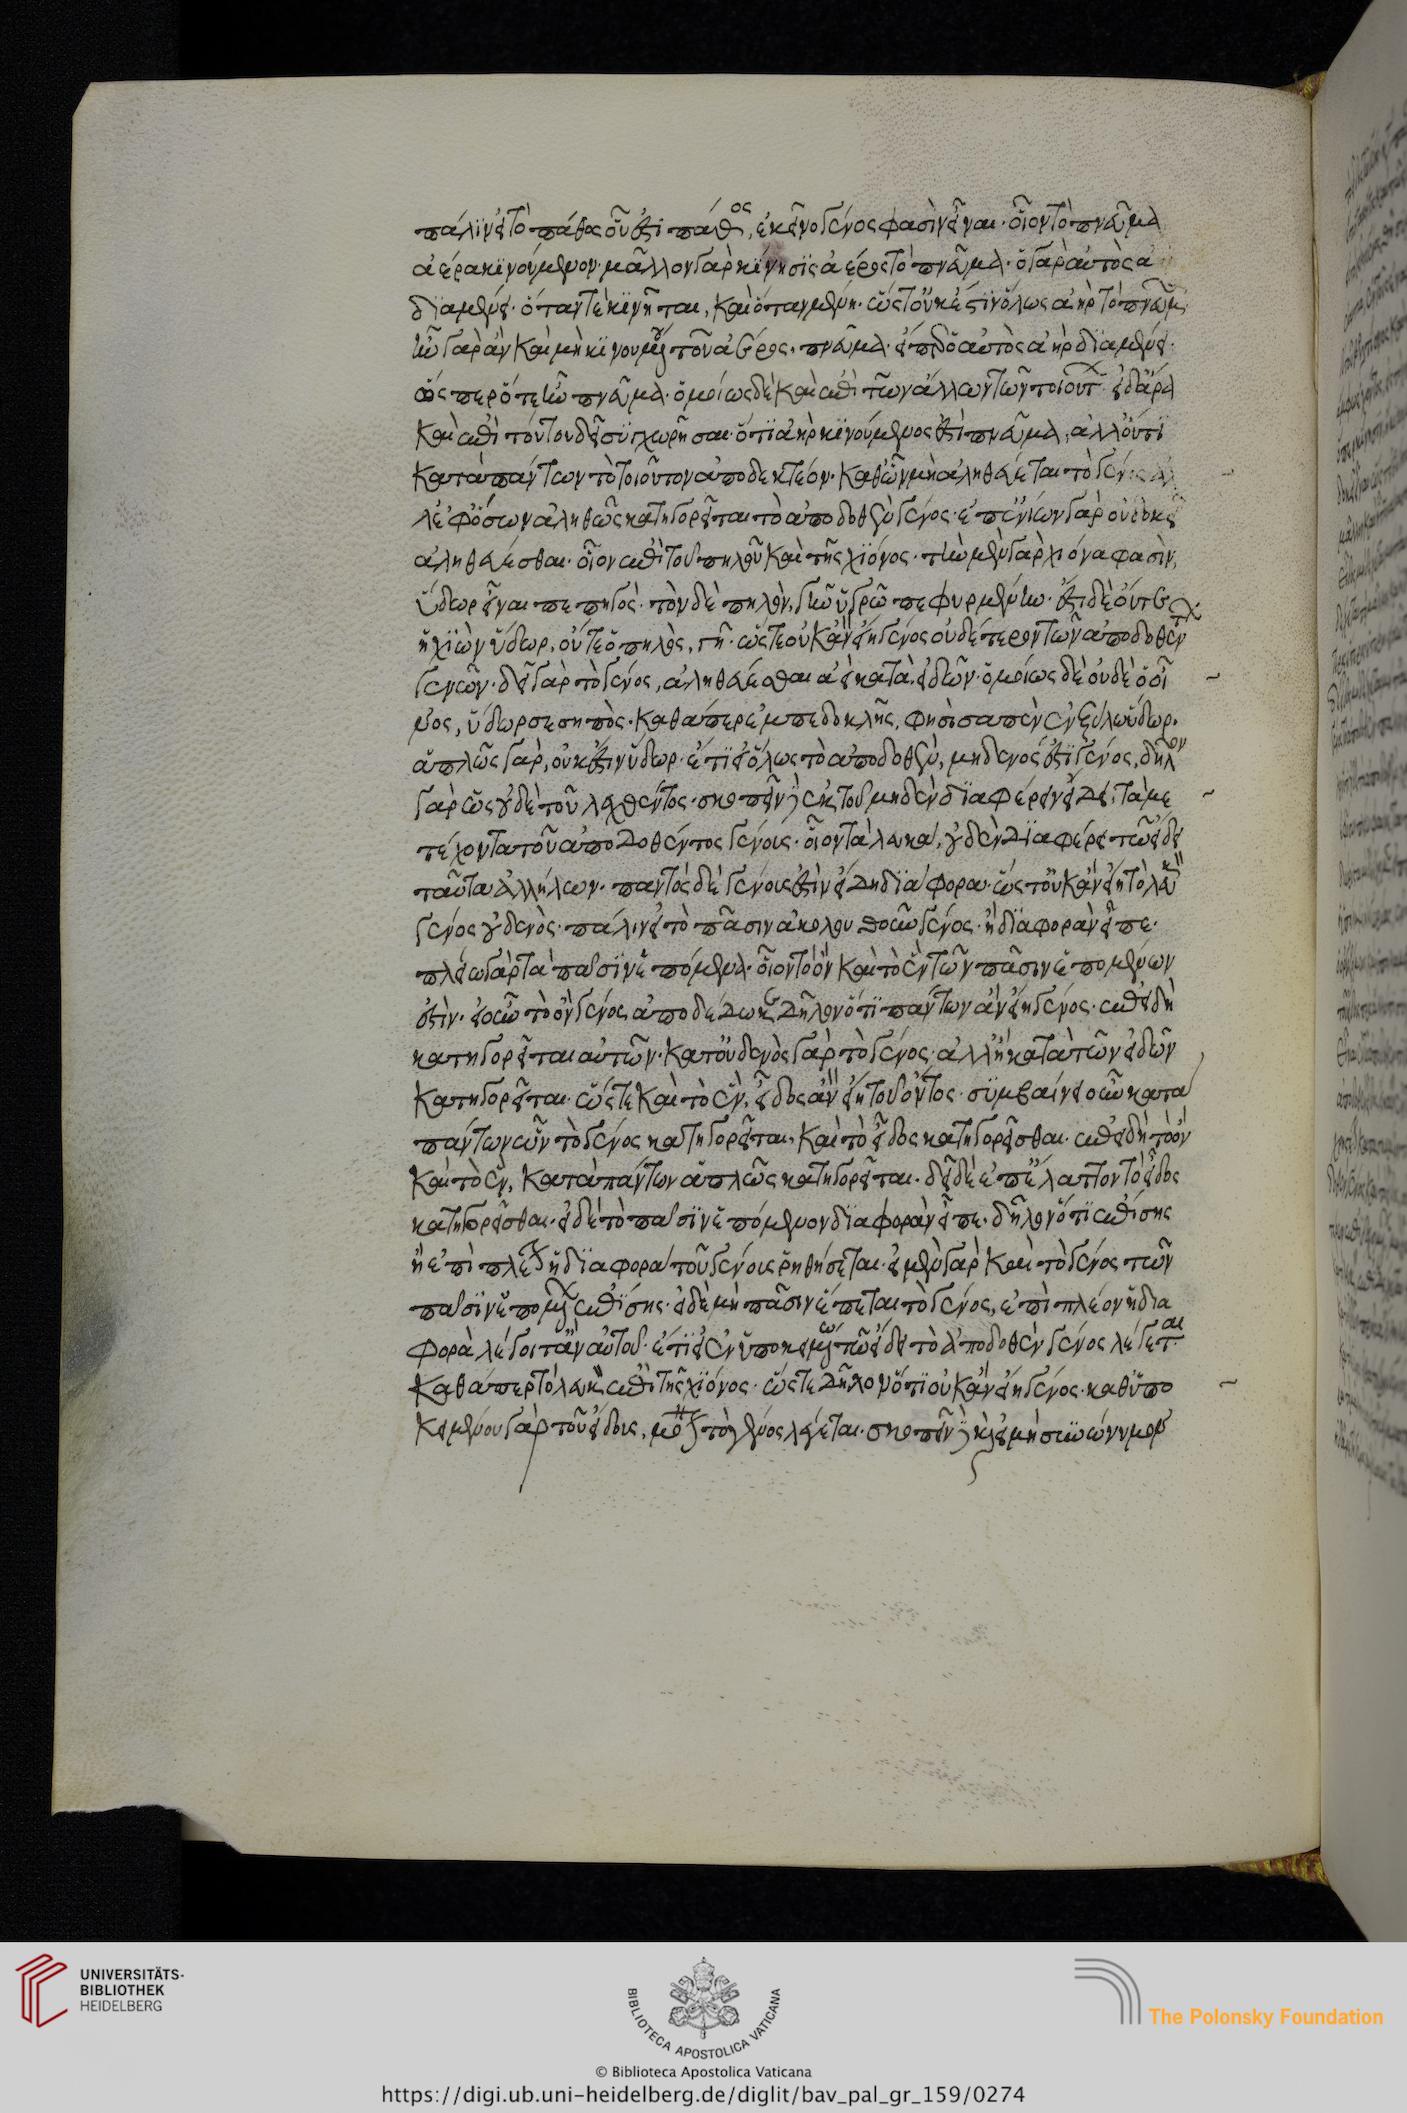 πάλιν εἰ τὸ πάθος οὗ ἐστὶ πάθος, ἐκεῖνο γένος φασὶν εἶναι· οἷον τὸ πνεῦμα
ἀέρα κινούμενον· μᾶλλον γὰρ κίνησις ἀέρος τὸ πνεῦμα· ὁ γὰρ αὐτὸς ἀ
διαμένει· ὅταν τὲ κινῆται, καὶ ὅταν μένη· ὥστ' οὐκ ἔστιν ὅλως ἀὴρ τὸ πνεῦμα
ἦν γὰρ ἂν καὶ μὴ κινουμένου τοῦ ἀέρος, πνεῦμα· εἴπερ ὁ αὐτὸς ἀὴρ διαμένει·
ὅς περ ὅτε ἦν πνεῦμα· ὁμοίως δὲ καὶ ἐπὶ τῶν ἄλλων τῶν τοιούτων· εἰ δ' ἄρα
καὶ ἐπὶ τούτου δεῖ συγχωρῆσαι· ὅτι ἀὴρ κινούμενος ἐστὶ πνεῦμα, ἀλλ' οὔτι
κατὰ πάντων τὸ τοιοῦτον ἀποδεκτέον· καθ' ὧν μὴ ἀληθεύεται τὸ γένος ἀλ
λ' ἐφ' ὅσων ἀληθῶς κατηγορεῖται τὸ ἀποδοθὲν γένος· ἐπ' ἐνίων γὰρ οὐ δοκεῖ
ἀληθεύεσθαι· οἷον ἐπὶ τοῦ πηλοῦ καὶ τῆς χιόνος· τὴν μὲν γὰρ χιόνα φασὶν,
ὕδωρ εἶναι πεπηγός· τὸν δὲ πηλὸν, γῆν ὑγρῶ πεφυρμένην· ἔστι δὲ οὔτε
ἡ χιὼν ὕδωρ, οὔτε ὁ πηλὸς, γῆ· ὥστε οὐκ ἂν εἴη γένος οὐδέτερον τῶν ἀποδοθέντων
γενῶν· δεῖ γὰρ τὸ γένος, ἀληθεύεσθαι ἀεὶ κατὰ εἰδῶν· ὁμοίως δὲ οὐδὲ ὁ οἶ
νος, ὕδωρ σεσηπὸς· καθάπερ ἐμπεδοκλῆς, φησὶ σαπὲν ἐν ξύλω ὕδωρ·
ἁπλῶς γὰρ, οὐκ ἔστιν ὕδωρ· ἔτι εἰ ὅλως τὸ ἀποδοθὲν, μηδενός ἐστι γένος, δῆλον
γὰρ ὡς οὐδὲ τοῦ λεχθέντος· σκοπεῖν δὲ ἐκ τοῦ μηδὲν διαφέρειν εἴδει, τὰ με
τέχοντα τοῦ ἀποδοθέντος γένους· οἷον τὰ λευκά, οὐδὲν διαφέρει τῶ εἴδει
ταῦτα ἀλλήλων· παντὸς δὲ γένους ἐστὶν εἴδη διάφορα· ὥστ' οὐκ ἂν εἴη τὸ λευκὸν
γένος οὐδενὸς· πάλιν εἰ τὸ πᾶσιν ἀκολουθοῦν γένος· ἢ διαφορὰν εἶπε·
πλείω γὰρ τὰ πᾶσιν ἑπόμενα· οἷον τὸ ὂν καὶ τὸ ἓν τῶν πᾶσιν ἑπομένων
ἐστὶν· εἰ οὖν τὸ ὂν γένος ἀποδέδωκε δῆλον ὅτι πάντων ἂν εἴη γένος· ἐπειδὴ
κατηγορεῖται αὐτῶν· κατ' οὐδενὸς γὰρ τὸ γένος· ἀλλ' ἢ κατὰ τῶν εἰδῶν
κατηγορεῖται· ὥστε καὶ τὸ ἓν, εἶδος ἂν εἴη τοῦ ὄντος· συμβαίνει οὖν κατὰ
πάντων ὧν τὸ γένος κατηγορεῖται, καὶ τὸ εἶδος κατηγορεῖσθαι· ἐπειδὴ τὸ ὂν
καὶ τὸ ἓν, κατὰ πάντων ἁπλῶς κατηγορεῖται· δεῖ δὲ ἐπ' ἔλαττον τὸ εἶδος
κατηγορεῖσθαι· εἰ δὲ τὸ πᾶσιν ἑπόμενον διαφορὰν εἶπε· δῆλον ὅτι ἐπίσης
ἢ ἐπὶ πλεῖον ἡ διαφορὰ τοῦ γένους ῥηθήσεται· εἰ μὲν γὰρ καὶ τὸ γένος τῶν
πᾶσιν ἑπομένων ἐπίσης· εἰ δὲ μὴ πᾶσιν ἕπεται τὸ γένος, ἐπὶ πλέον ἡ δια
φορὰ λέγοιτ' ἂν αὐτοῦ· ἔτι εἰ ἐν ὑποκειμένω τῶ εἴδει τὸ ἀποδοθὲν γένος λέγεται
καθάπερ τὸ λευκὸν ἐπὶ τῆς χιόνος· ὥστε δῆλον ὅτι οὐκ ἂν εἴη γένος· καθ' ὑπο
κειμένου γὰρ τοῦ εἴδους, μόνον τὸ γένος λέγεται· σκοπεῖν δὲ καὶ εἰ μὴ συνώνυμον
© Biblioteca Apostolica Vaticana
https://digi.ub.uni-heidelberg.de/diglit/bav_pal_gr_159/0274
UNIVERSITÄTS-
BIBLIOTHEK
HEIDELBERG
BIBLIOTECA APOSTOLICA VATICANA
The Polonsky Foundation